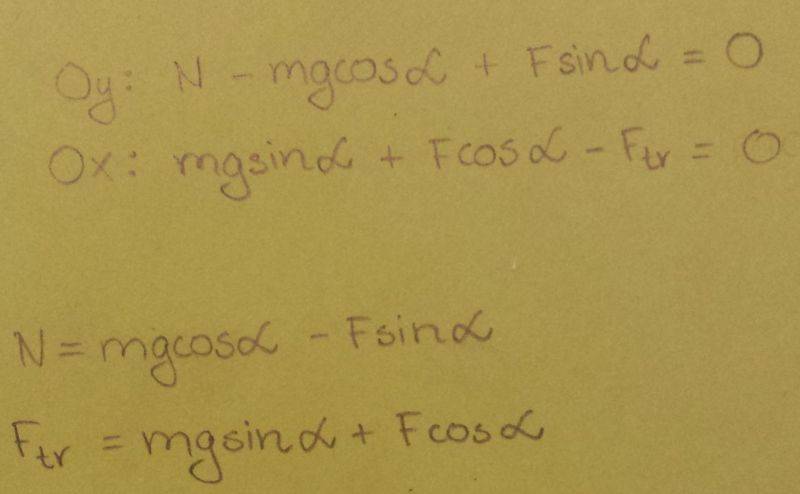 Oy: N - mgcosα + Fsinα = 0
Ox: mgsinα + Fcosα - Ftr = 0
N = mgcosα - Fsinα
Ftr = mgsinα + Fcosα